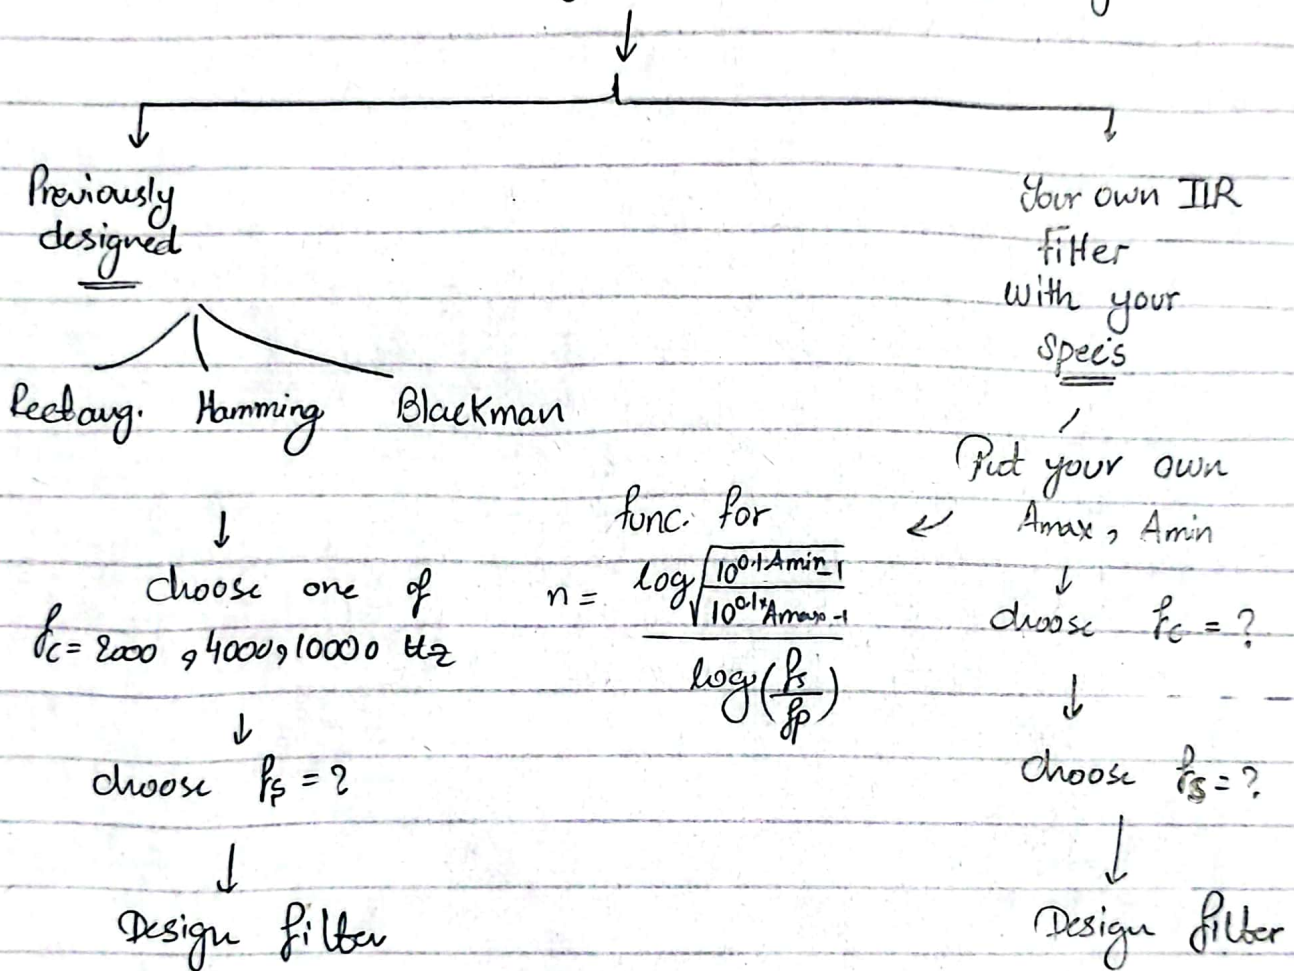 Previously
designed
Rectang. Hamming Blackman
choose one of
fc = 2000 , 4000, 10000 Hz
choose fs = ?
Design filter
func. for
n = log√((10^0.1*Amin - 1)/(10^0.1*Amax - 1))
log(fs/fp)
Your own IIR
filter
with your
specs
Put your own
Amax, Amin
choose fc = ?
choose fs = ?
Design filter